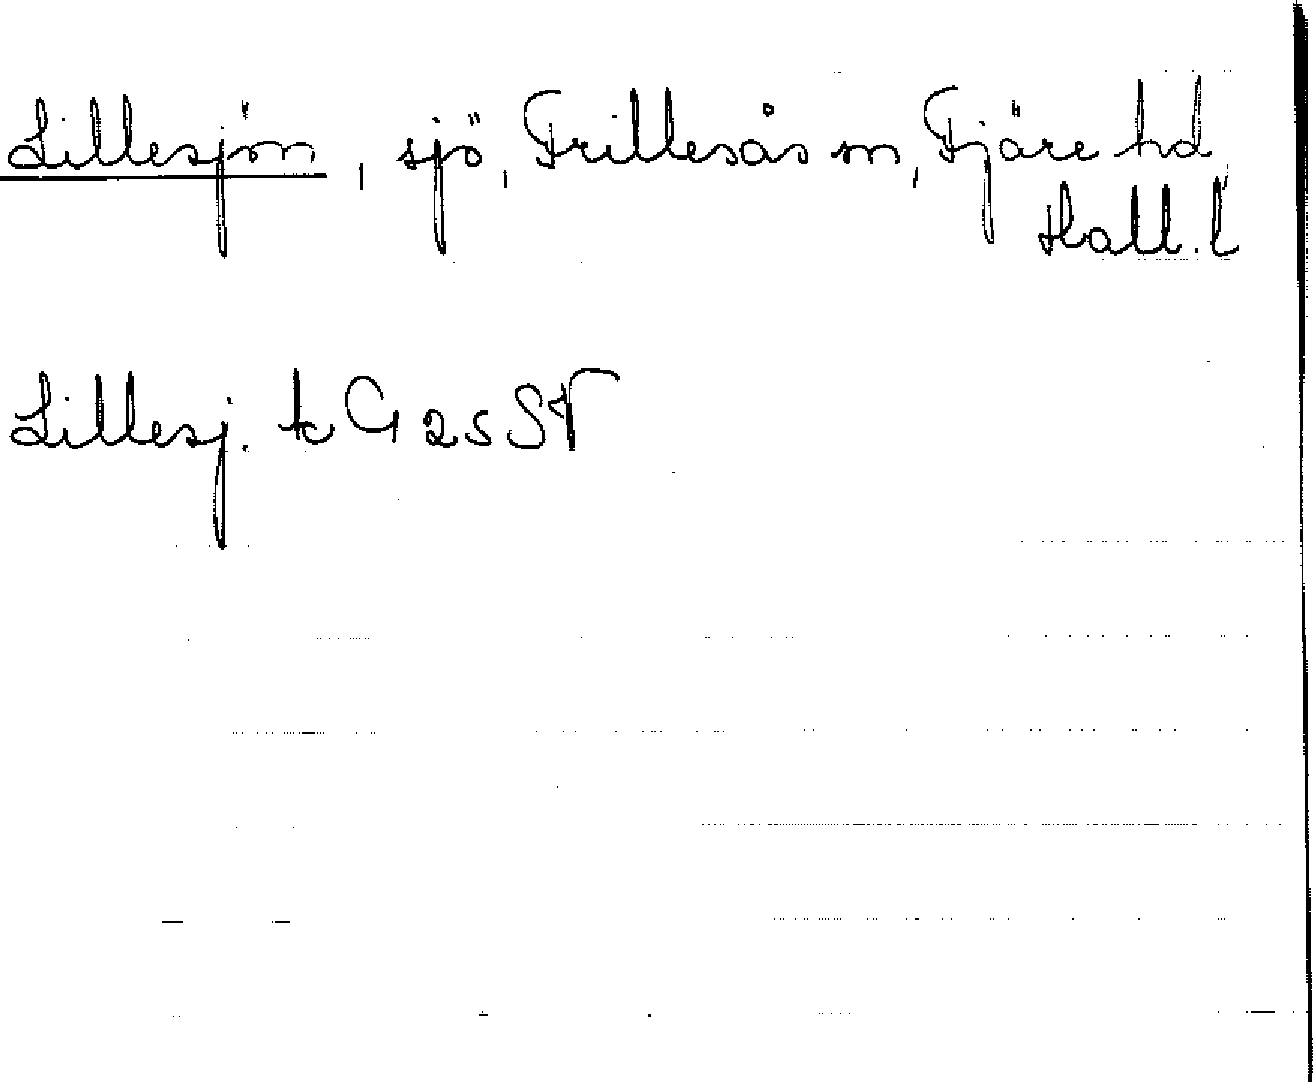 Lillesjön, sjö, Frillesås sn, Fjäre hd,
Hall. l
Lillesj. tc G 25 SV